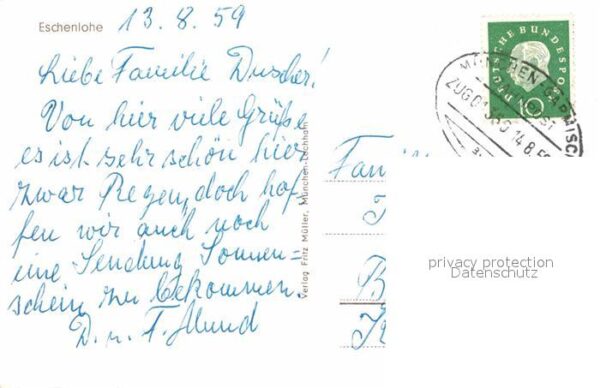 Eschenlohe
13.8.59
Liebe Familie Duscher!
Von hier viele Grüße
es ist sehr schön hier
zwar Regen, doch hof-
fen wir auch noch
eine Sendung Sonnen-
schein zu bekommen.
D. u. F. Mund
Verlag Fritz Müller, München-Lochham
DEUTSCHE BUNDESPOST
10
MÜNCHEN-GARMISCH
ZUG
14.8.59
Fami
privacy protection
Datenschutz